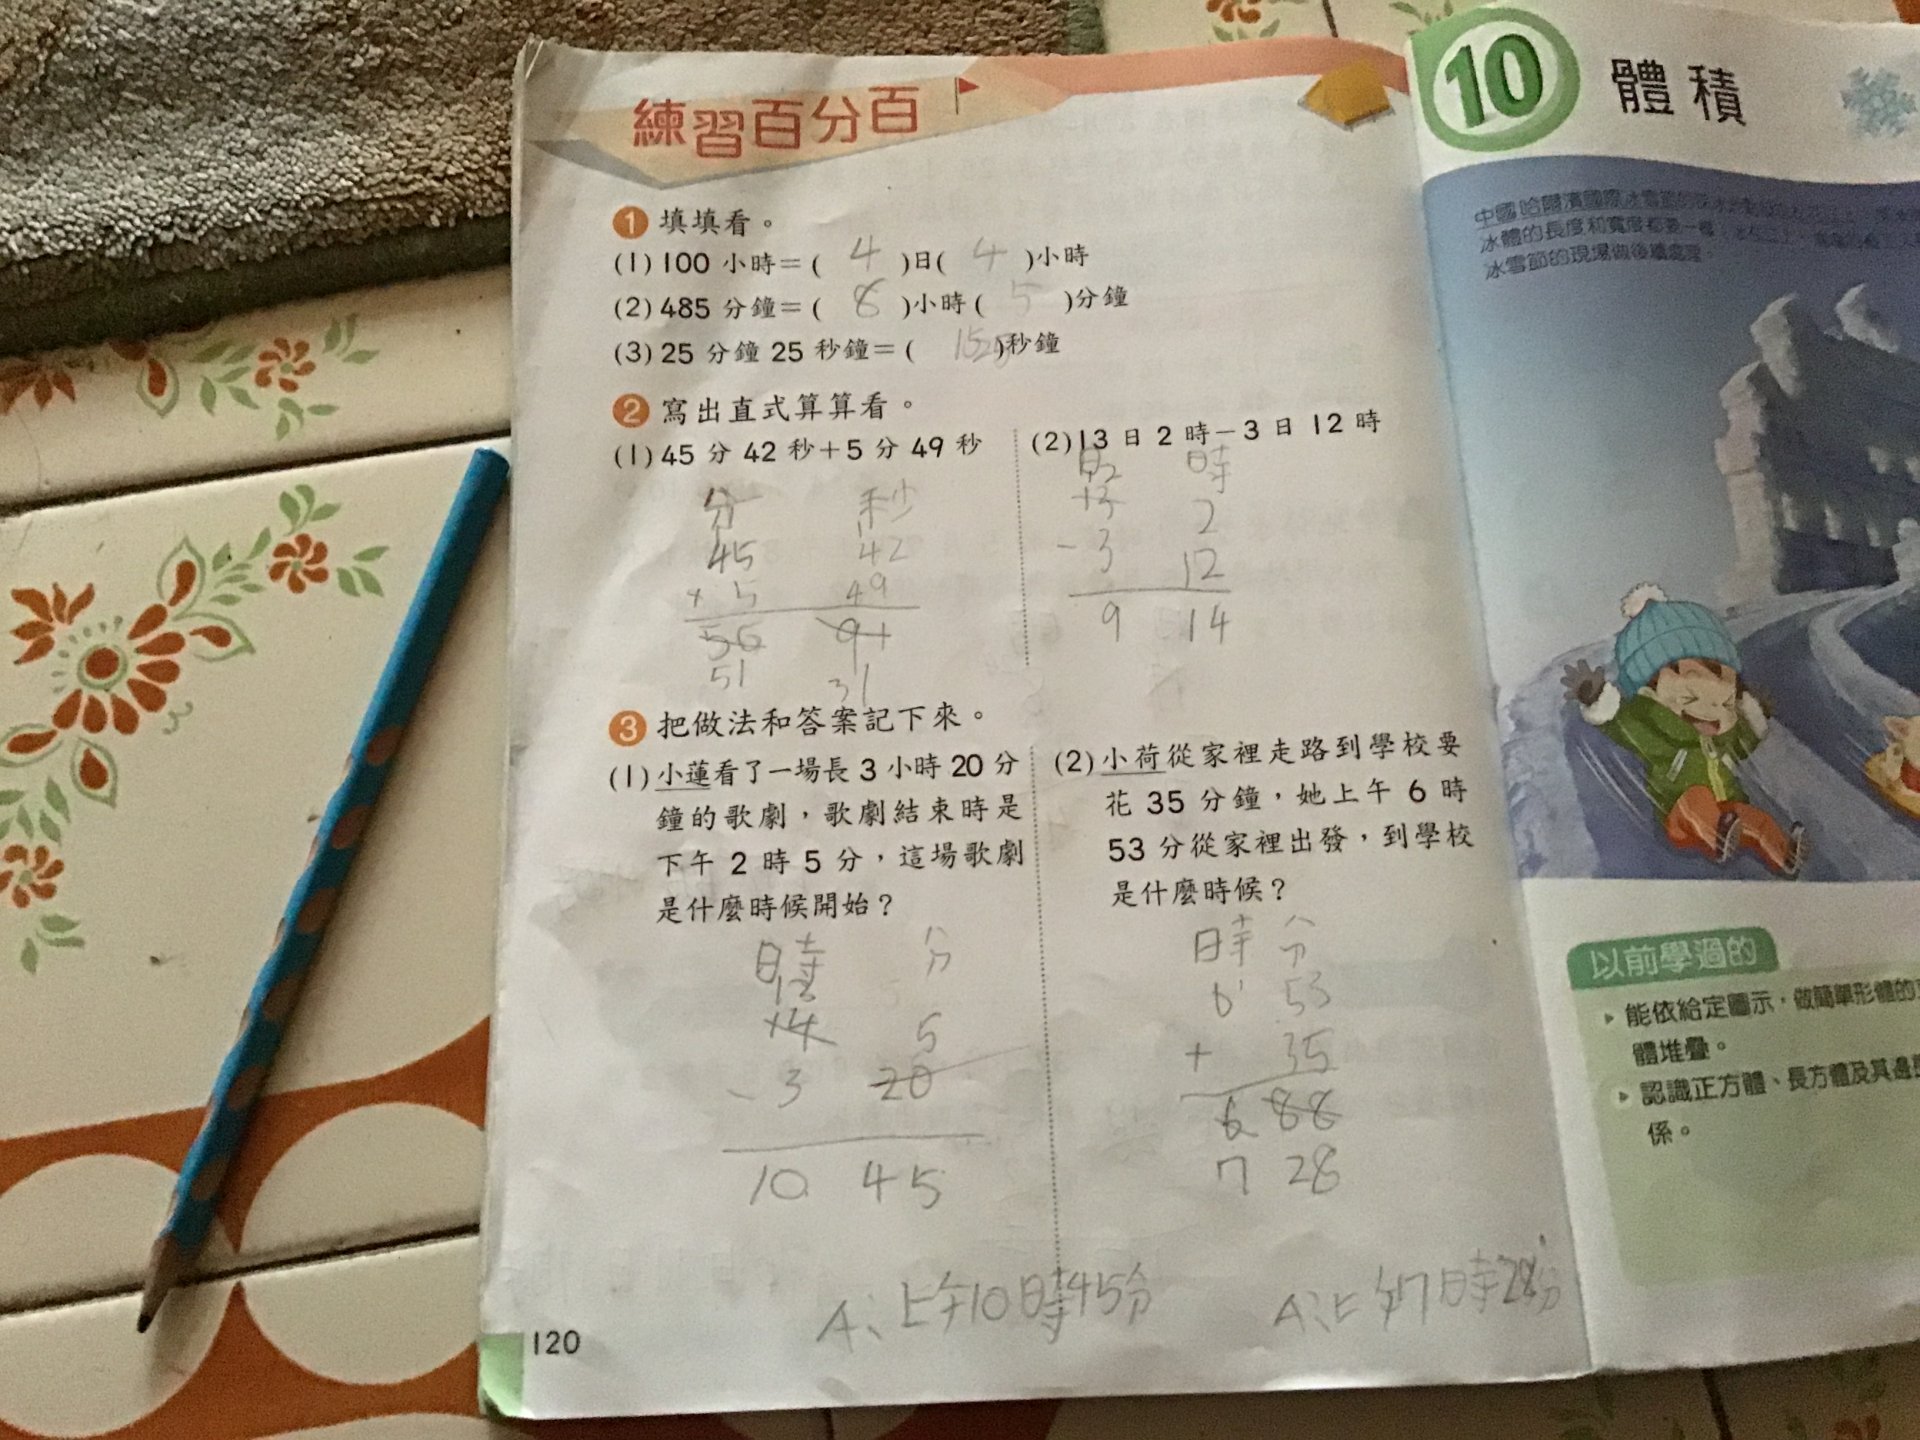 練習百分百
1 填填看。
(1) 100 小時=( 4 )日( 4 )小時
(2) 485 分鐘=( 8 )小時( 5 )分鐘
(3) 25 分鐘 25 秒鐘=( 1525 )秒鐘
2 寫出直式算算看。
(1) 45 分 42 秒+5 分 49 秒
分 秒
45 42
+ 5 49
50 91
51 31
(2) 13 日 2 時-3 日 12 時
日 時
12
13 2
- 3 12
9 14
3 把做法和答案記下來。
(1) 小蓮看了一場長 3 小時 20 分
鐘的歌劇,歌劇結束時是
下午 2 時 5 分,這場歌劇
是什麼時候開始?
時 分
13
14 5
- 3 20
10 45
A:上午10時45分
(2) 小荷從家裡走路到學校要
花 35 分鐘,她上午 6 時
53 分從家裡出發,到學校
是什麼時候?
時 分
6 53
+ 35
6 88
7 28
A:上午7時28分
120
10 體積
中國哈爾濱國際冰雪節的
冰體的長度和寬度都要一樣,
冰雪節的現場做後續處理。
以前學過的
▸ 能依給定圖示,做簡單形體的
體堆疊。
▸ 認識正方體、長方體及其邊長
係。